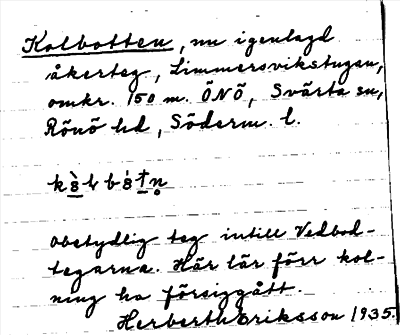 Kolbotten, nu igenlagd
åkerteg, Limmersvikstugan,
omkr. 150 m. ÖNÖ, Svärta sn,
Rönö hd, Söderm. l.
Obetydlig teg intill Vedbod-
tegarna. Här lär förr kol-
ning ha försiggått.
Herbert Eriksson 1935.